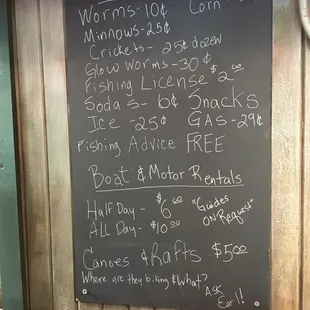 Worms-10¢ Corn
Minnows-25¢
Crickets- 25¢ dozen
Glow Worms-30¢
Fishing License $2.00
Sodas- 6¢ Snacks
Ice -25¢ GAS-29¢
Fishing Advice FREE
Boat & Motor Rentals
Half Day- $6.00 "Guides
ALL Day- $10.00 ON Request"
Canoes & Rafts $5.00
Where are they biting & What?
Ask
Earl!